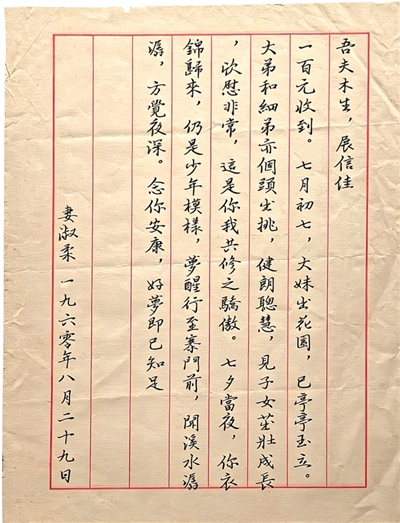 吾夫木生，展信佳
一百元收到。七月初七，大妹出花園，已亭亭玉立。
大弟和細弟亦個頭出挑，健朗聰慧，見子女茁壯成長
，欣慰非常，這是你我共修之驕傲。七夕當夜，你衣
錦歸來，仍是少年模樣，夢醒行至寨門前，聞溪水潺
潺，方覺夜深。念你安康，好夢即已知足
妻淑柔 一九六零年八月二十九日